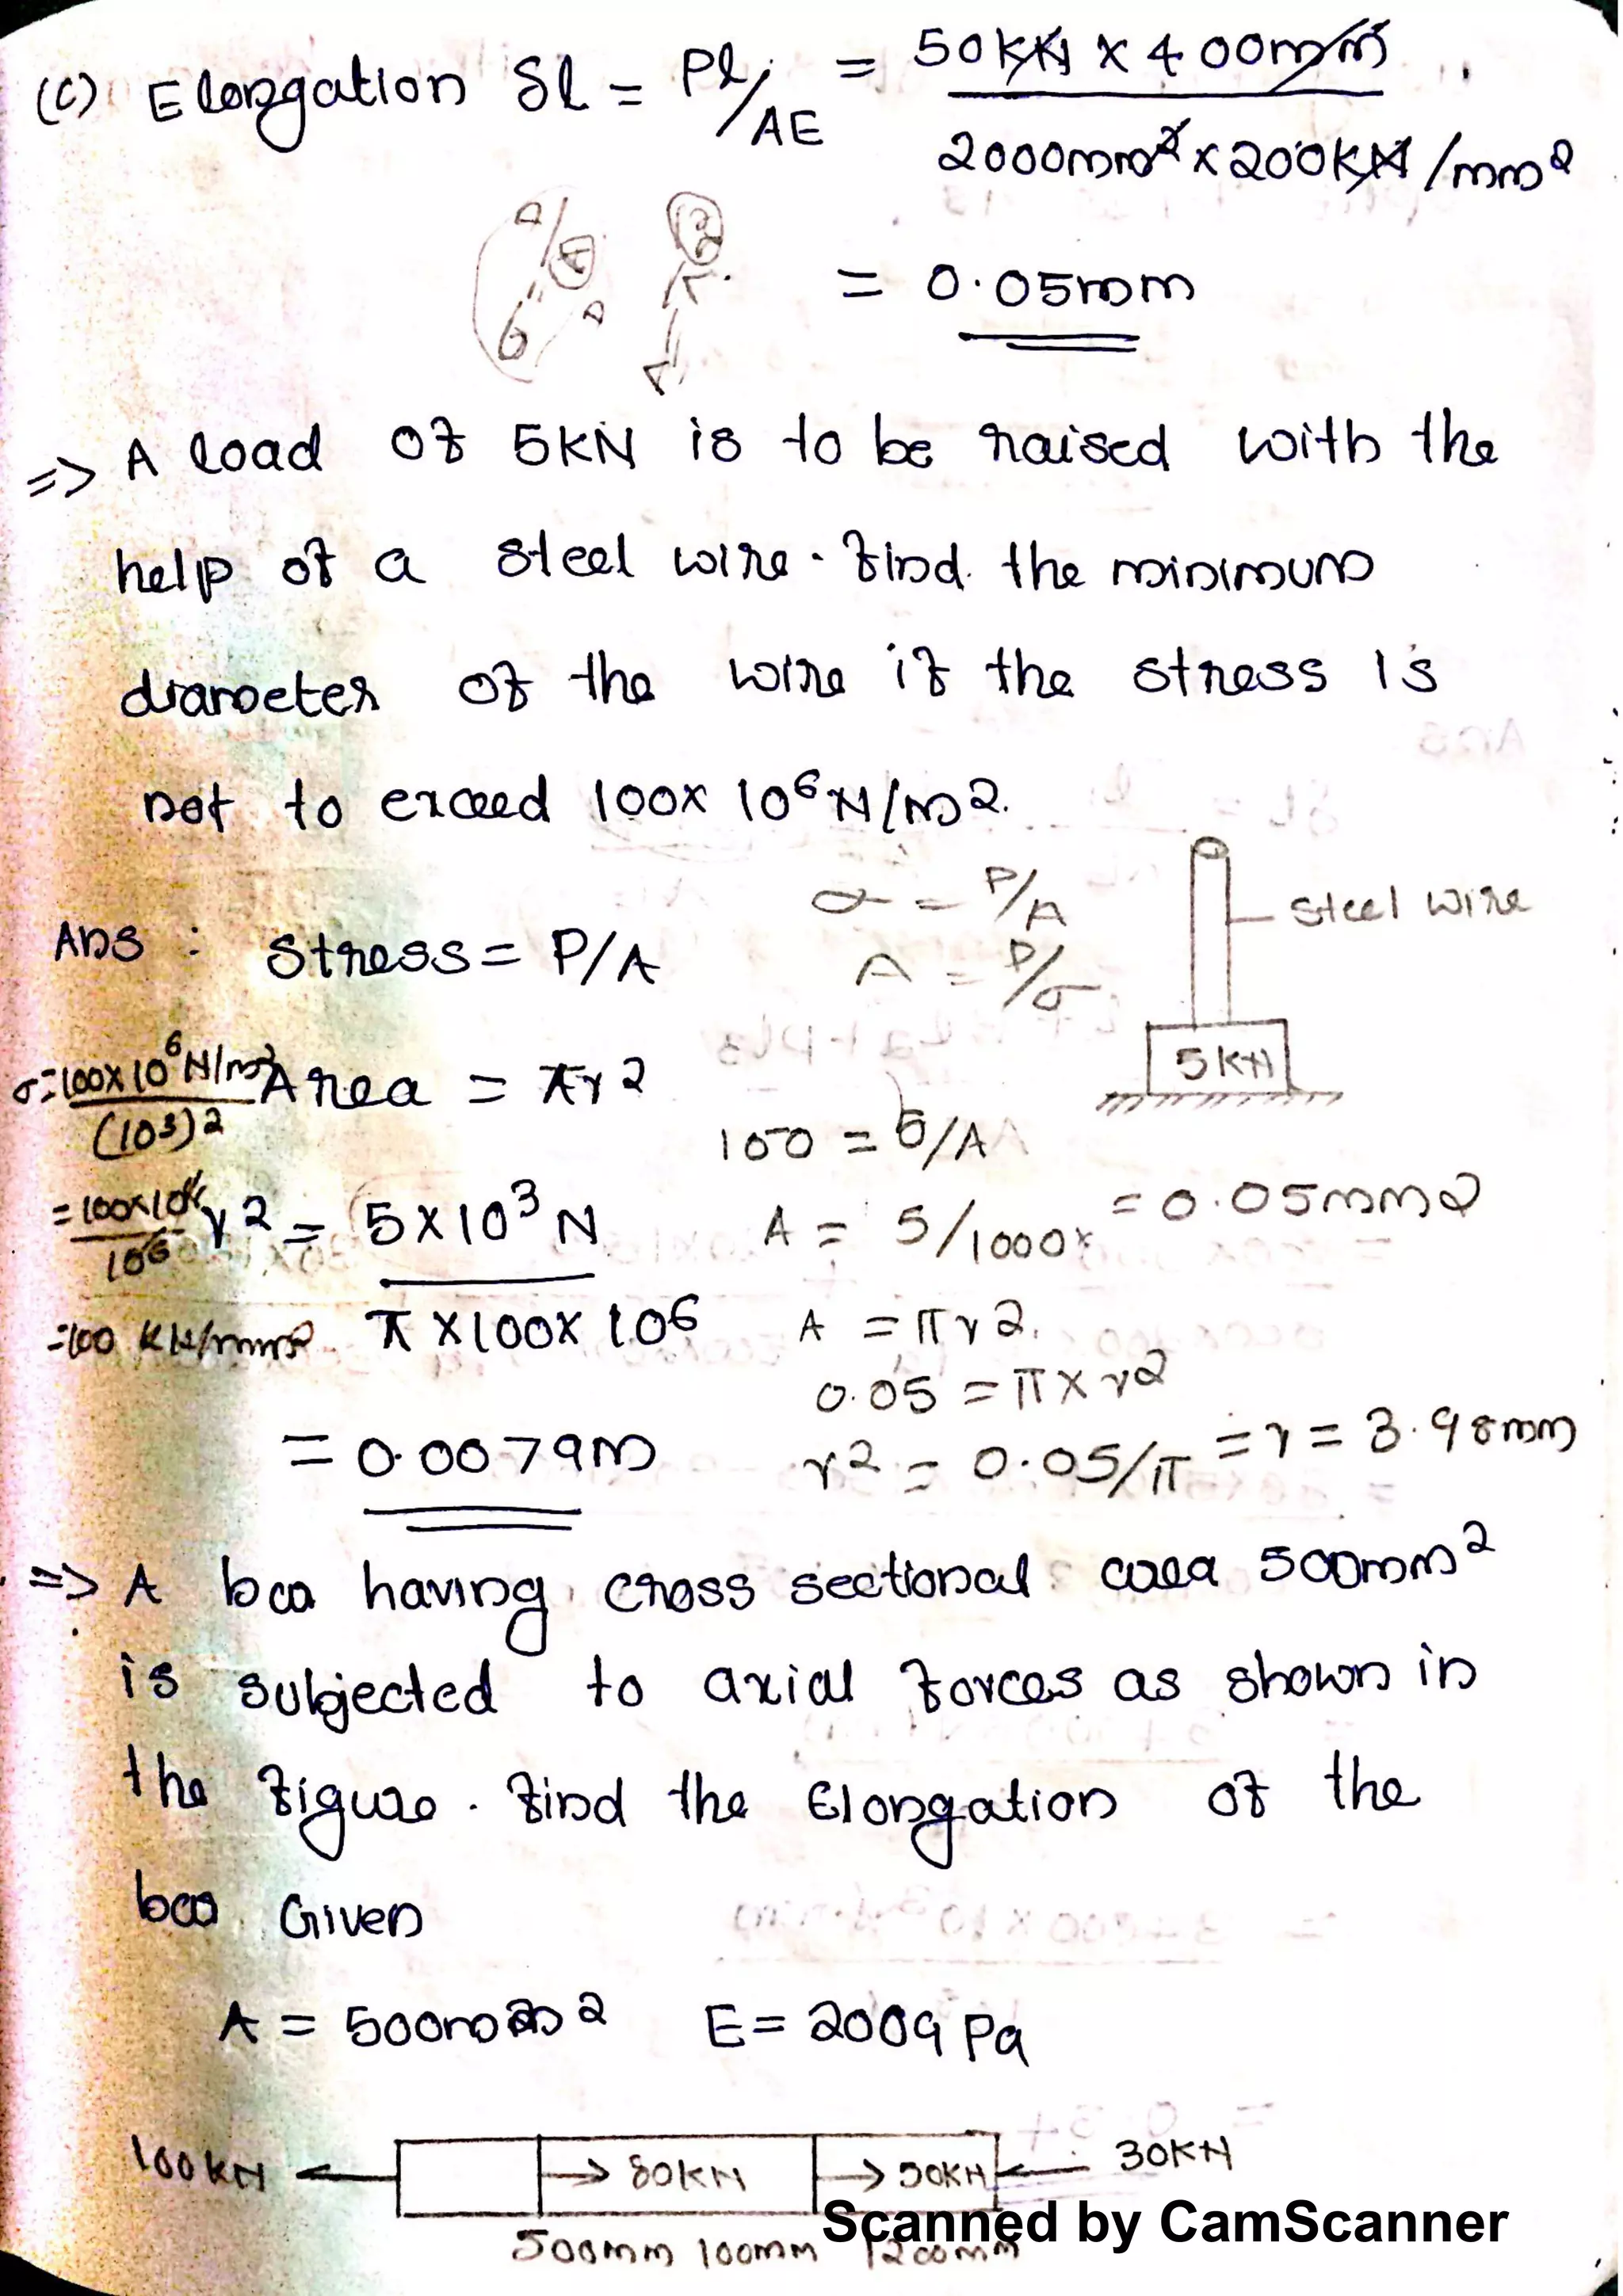 (c) Elongation δl = Pl/AE = 50KN x 400mm
2000mm² x 200KN/mm²
= 0.05mm
=> A load of 5KN is to be raised with the
help of a steel wire. find the minimum
diameter of the wire if the stress is
not to exceed 100x 10⁶ N/m2.
σ = P/A
Steel wire
Ans : Stress = P/A
A = P/σ
5KN
σ=100x10⁶N/m²
(10³)2
Area = πr2
100 = 5/A
=100x10⁶
10⁶
r2 = 5x10³ N
π x100x 10⁶
A = 5/1000x = 0.05mm2
=100 KN/mm2
A = πr2.
0.05 = πx r2
= 0.0079m
r2 = 0.05/π = r = 3.98mm
=> A bar having cross sectional area 500mm²
is subjected to axial forces as shown in
the figure. find the Elongation of the
bar Given
A = 500mm2 E= 200G Pa
100KN 80KN 50KN 30KN
500mm 100mm 1200mm
Scanned by CamScanner